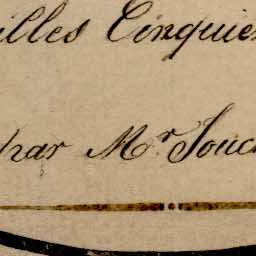 illes Cinquie
par Mr. Souc